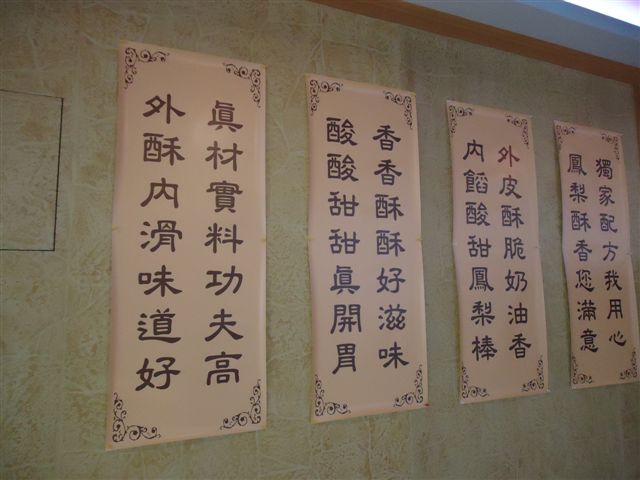 獨家配方我用心
鳳梨酥香您滿意
外皮酥脆奶油香
內饀酸甜鳳梨棒
香香酥酥好滋味
酸酸甜甜眞開胃
眞材實料功夫高
外酥內滑味道好